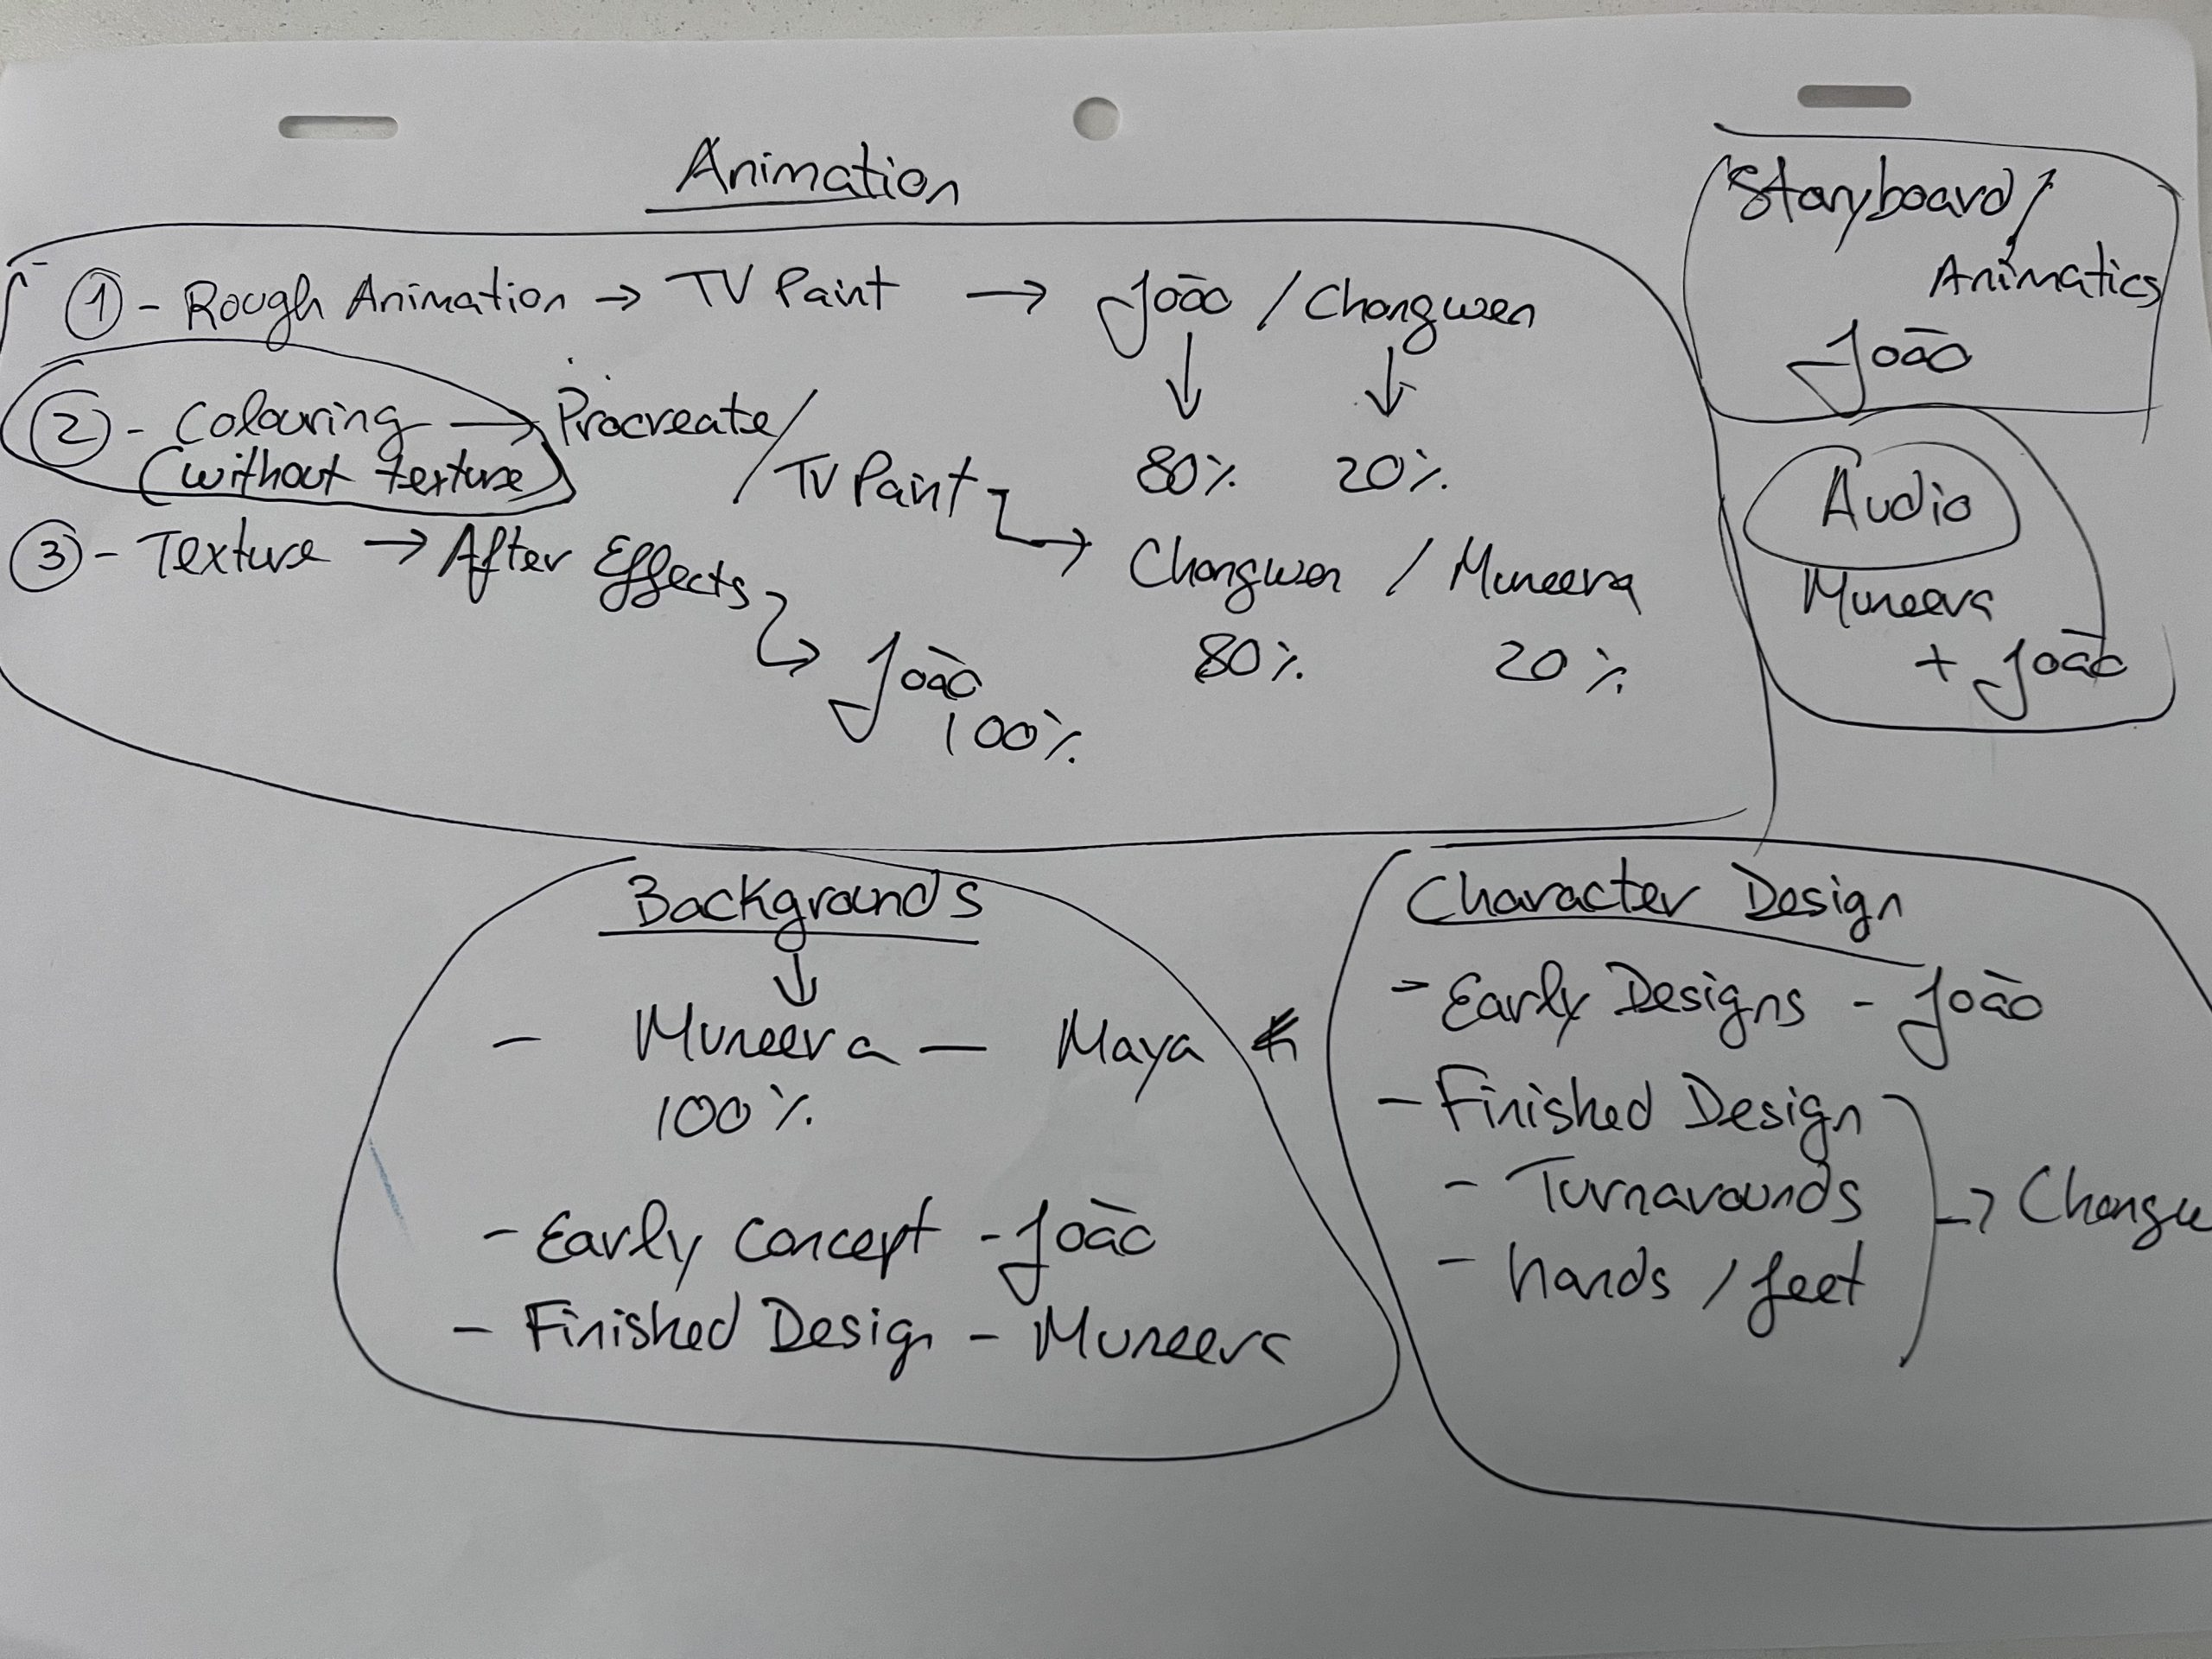 Animation
① - Rough Animation → TV Paint → João / Chongwen
② - Colouring → Procreate/
80% 20%
(without texture)
TV Paint
③ - Texture → After Effects
Chongwen / Muneera
80% 20%
João
100%
Storyboard /
Animatics
João
Audio
Muneera
+ João
Backgrounds
- Muneera - Maya
100%
- Early concept - João
- Finished Design - Muneera
Character Design
- Early Designs - João
- Finished Design
- Turnarounds
- hands / feet
→ Chongw